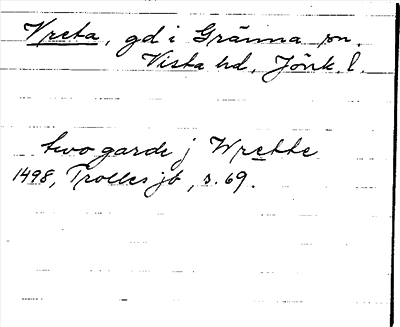 Vreta, gd i Gränna sn.
Vista hd, Jönk. l.
two garde j Wrette
1498, Trolles jb, s. 69.